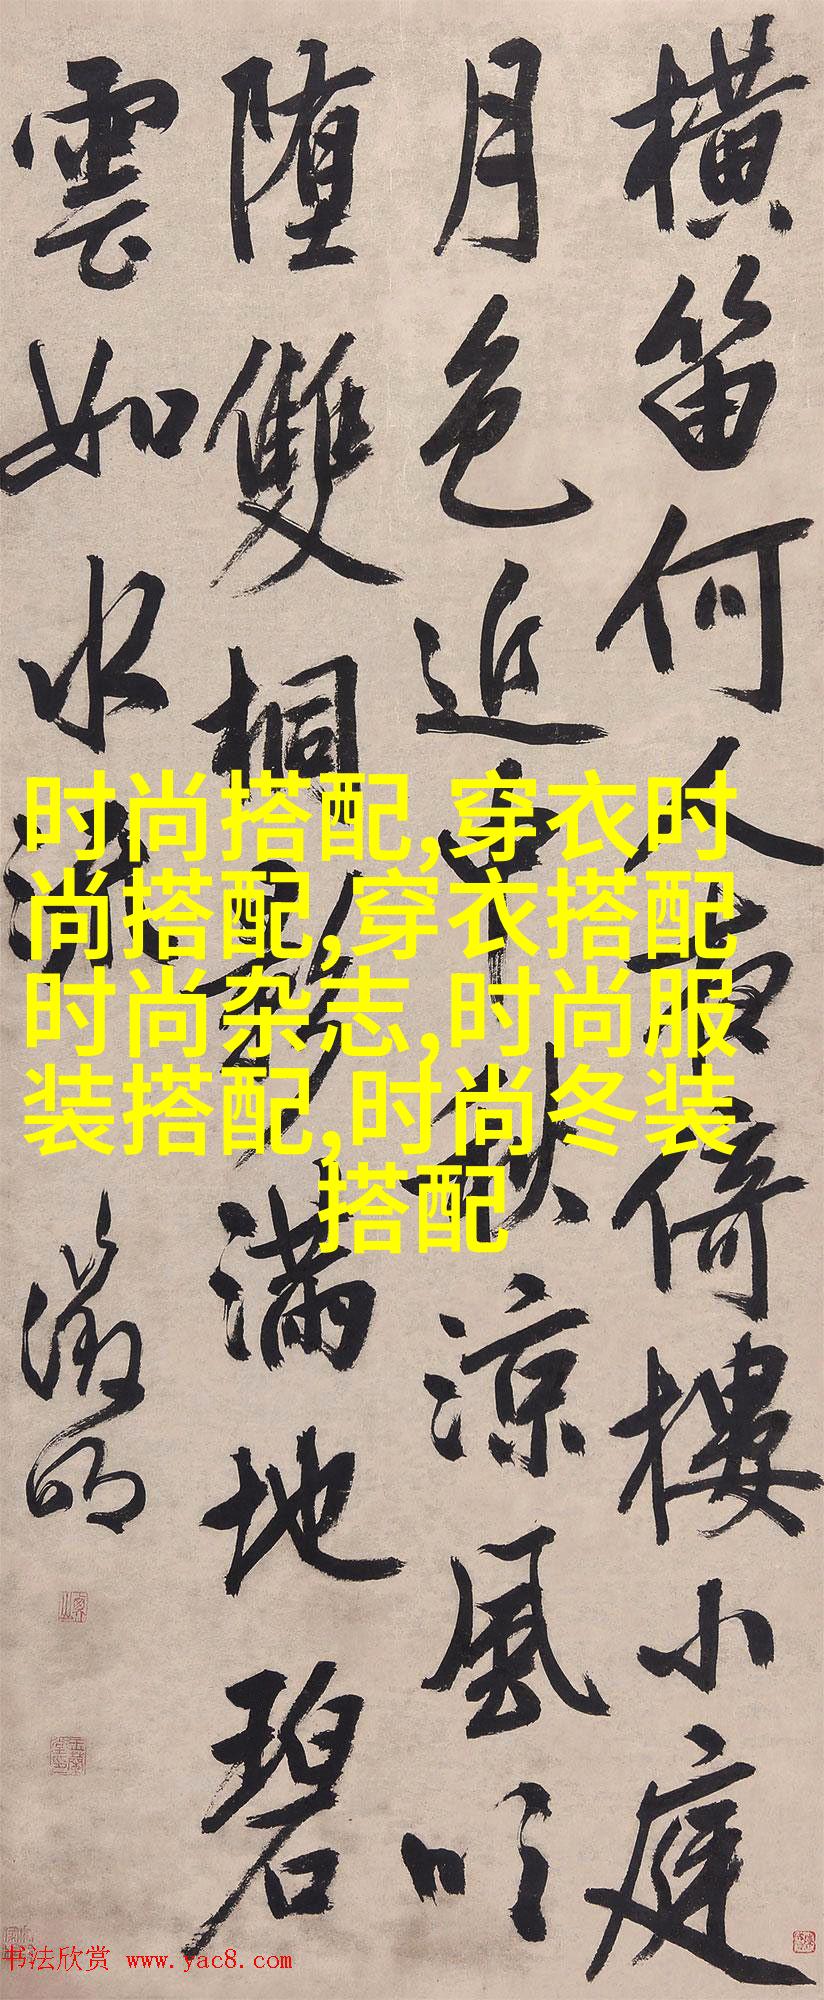 橫笛何人夜倚樓小庭
月色近中秋涼風吹
堕雙桐影滿地碧
雲如水流
徵明
时尚搭配,穿衣时
尚搭配,穿衣搭配
时尚杂志,时尚服
装搭配,时尚冬装
搭配
书法欣赏 www.yac8.com